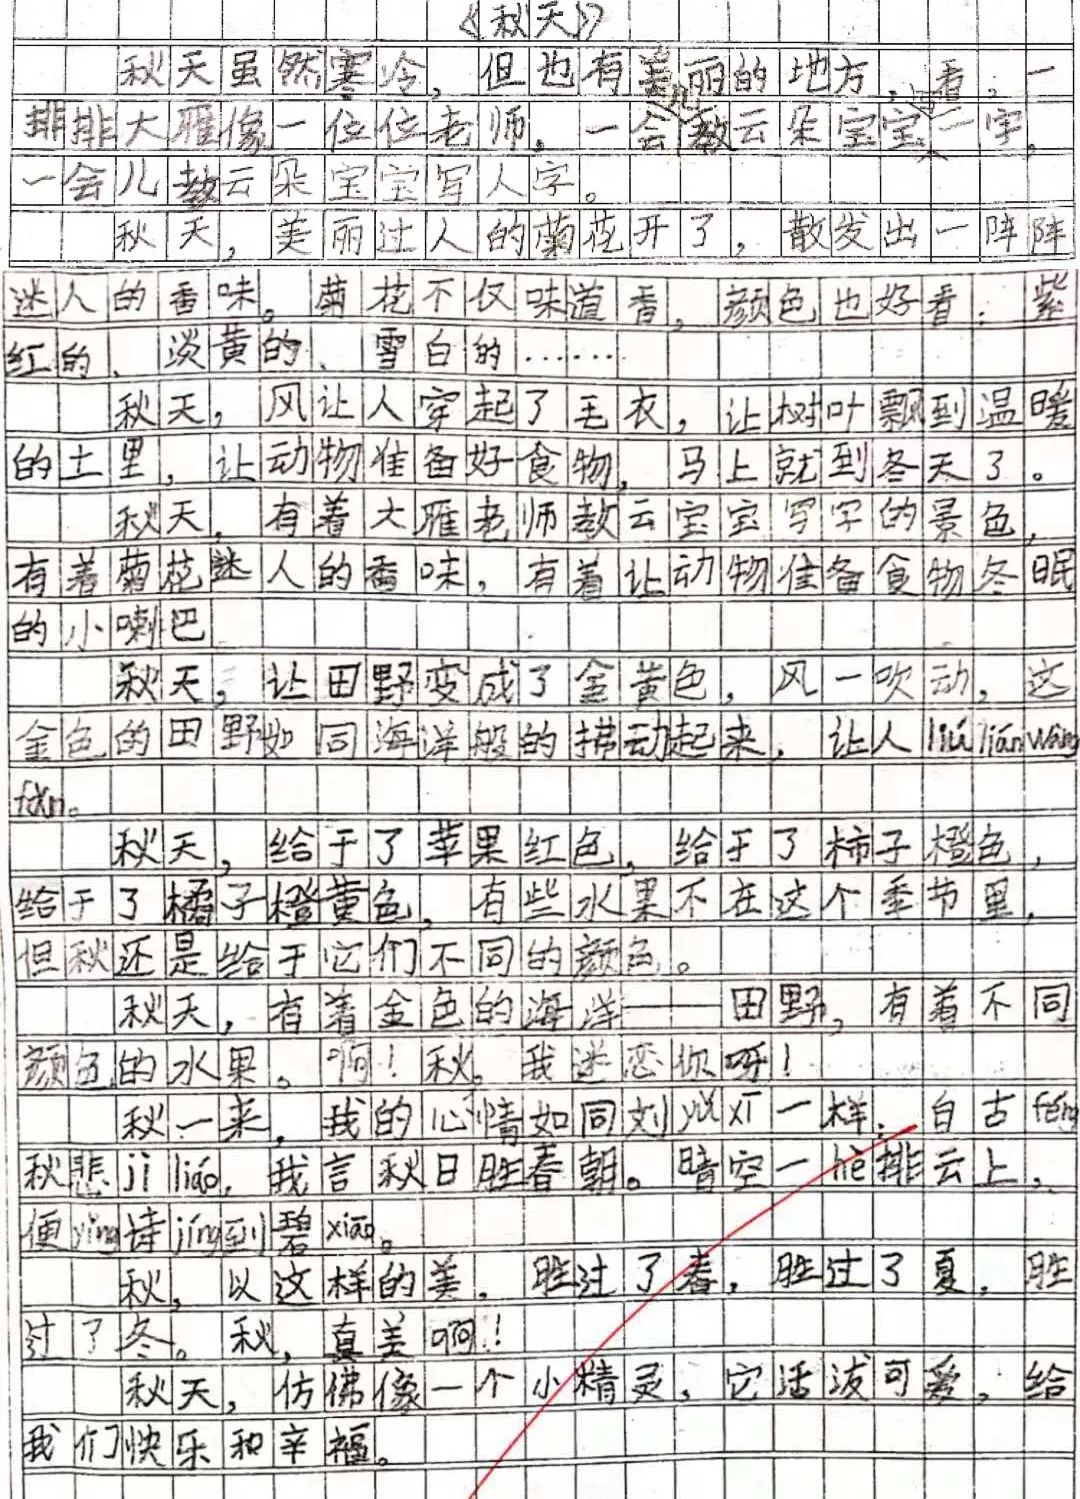 《秋天》
秋天虽然寒冷，但也有美丽的地方，看，一
排排大雁像一位位老师，一会儿教云朵宝宝写一字，
一会儿教云朵宝宝写人字。
秋天，美丽过人的菊花开了，散发出一阵阵
迷人的香味。菊花不仅味道香，颜色也好看：紫
红的、淡黄的、雪白的……
秋天，风让人穿起了毛衣，让树叶飘到温暖
的土里，让动物准备好食物，马上就到冬天了。
秋天，有着大雁老师教云宝宝写字的景色，
有着菊花迷人的香味，有着让动物准备食物冬眠
的小喇叭
秋天，让田野变成了金黄色，风一吹动，这
金色的田野如同海洋般的拂动起来，让人liú lián wàng
fǎn。
秋天，给于了苹果红色，给于了柿子橙色，
给于了橘子橙黄色，有些水果不在这个季节里，
但秋还是给于它们不同的颜色。
秋天，有着金色的海洋——田野，有着不同
颜色的水果。啊！秋。我迷恋你呀！
秋一来，我的心情如同刘yǔ xī一样：自古féng
秋悲jì liáo，我言秋日胜春朝。晴空一hè排云上，
便yǐng诗jíng到碧xiāo。
秋，以这样的美，胜过了春，胜过了夏，胜
过了冬。秋，真美啊！
秋天，仿佛像一个小精灵，它活泼可爱，给
我们快乐和辛福。